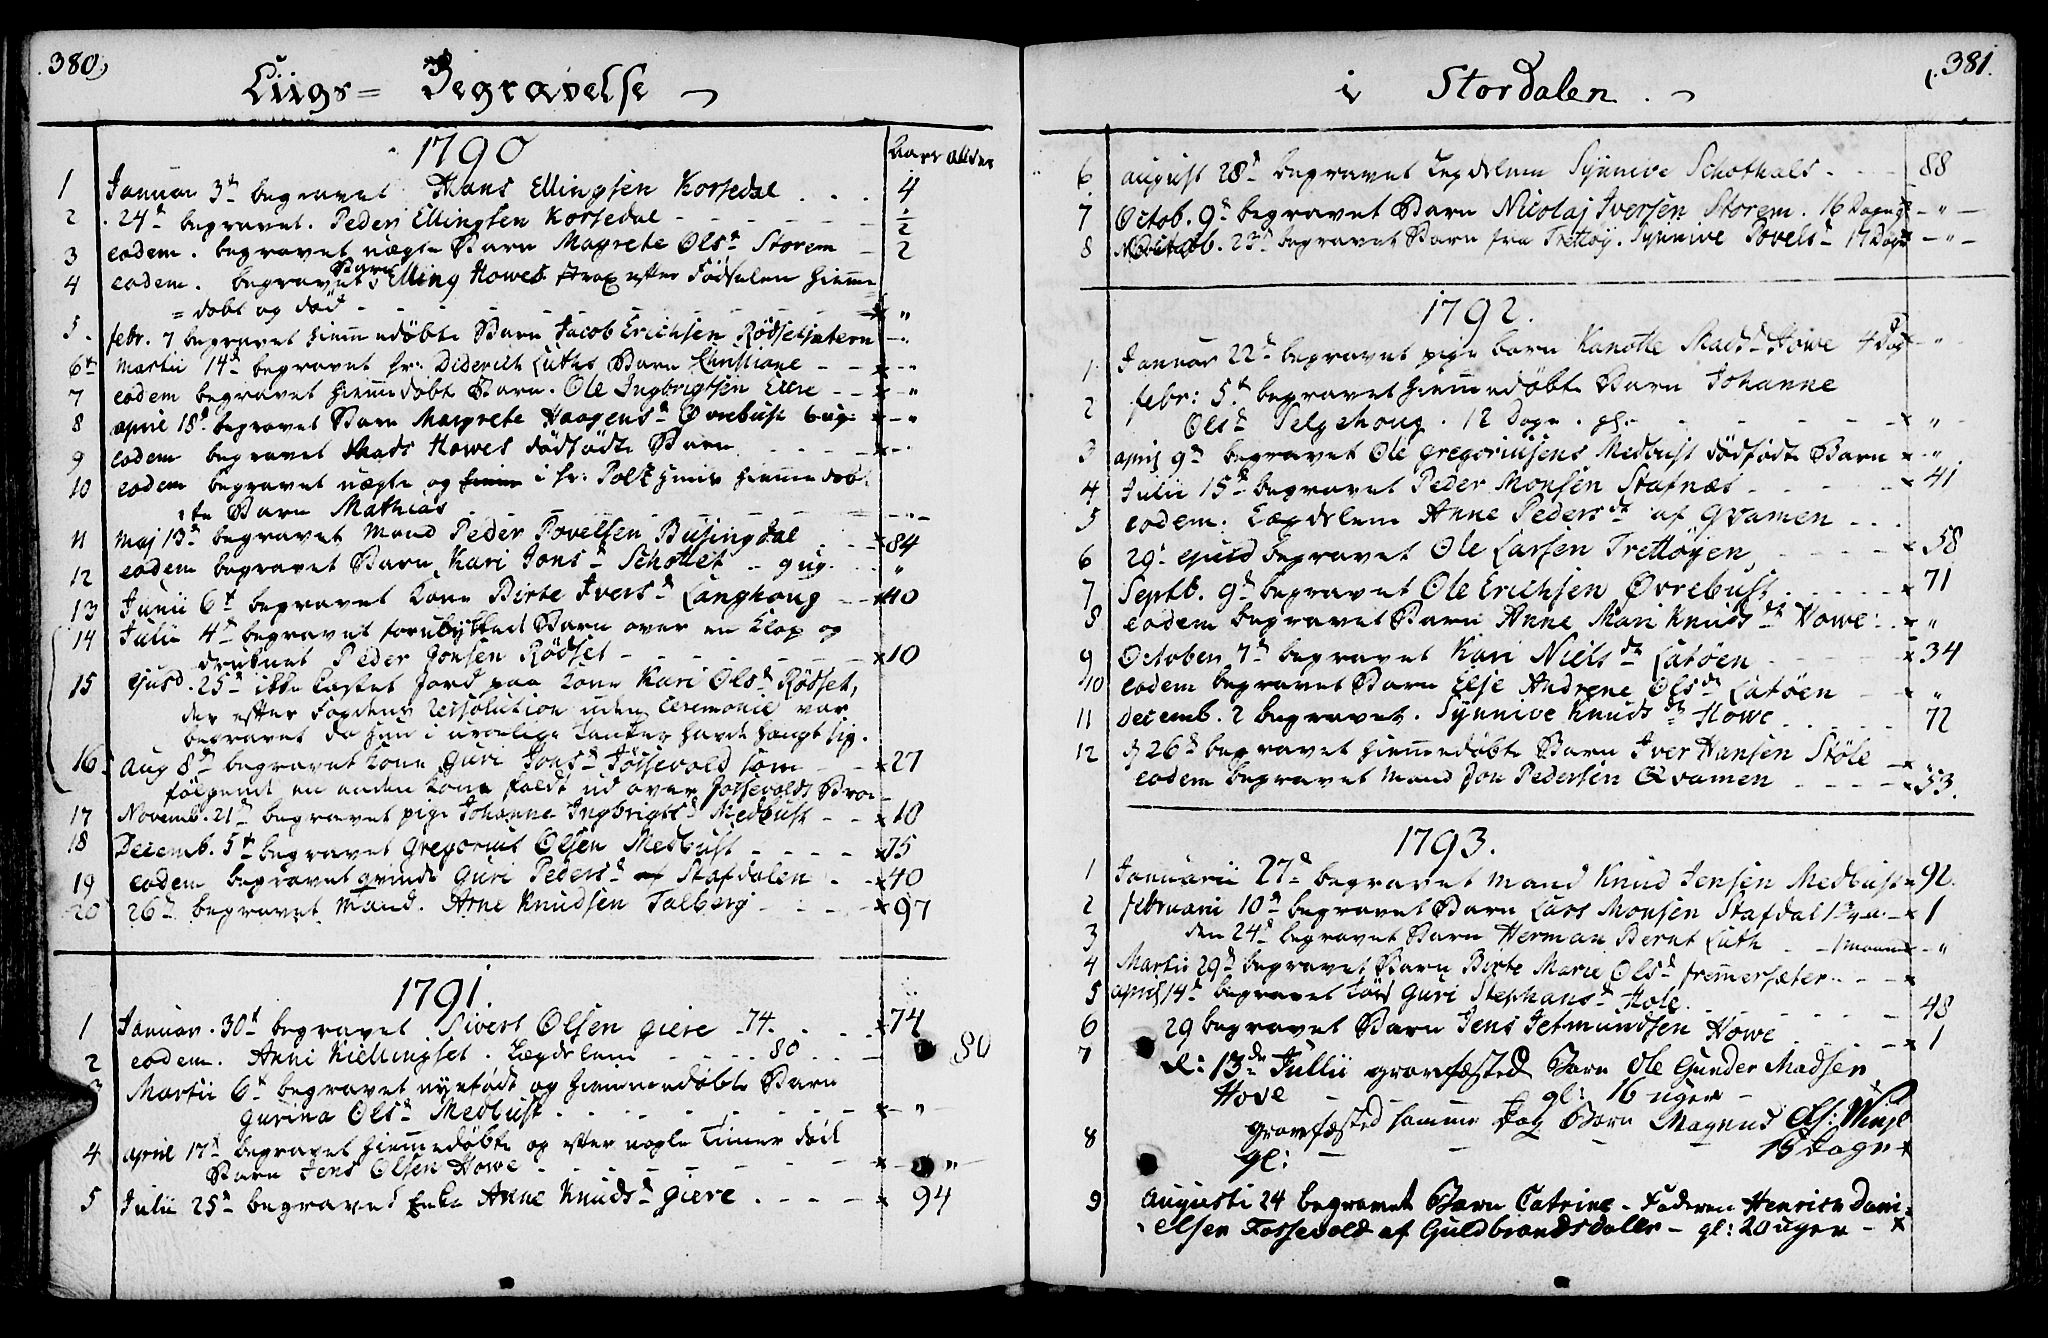 380.
Liigs= Begravelse
1790
Aars Alder
1 Januar 3d begravet Hans Ellingsen Korsedal . . . 4
2 . 24d begravet. Peder Ellingsen Korsedal - - - - - ½
3 eodem. begravet uægte Barn Magrete Olsd Storem - 2
4 eodem. begravet Barn Elling Howes strax efter Fødselen hiemme
= døbt og død - - - - - "
5. febr. 7 begravet hiemmedøbte Barn Jacob Erichsen Rødsetsætern - "
6 Martii 14d begravet hr: Diderich Luths Barn Christiane - - x - "
7 eodem begravet hiemmedøbt Barn. Ole Ingbrigtsen Eide - - x - "
8 april 18d begravet Barn Margrete Haagensd Øvrebust 6 ug: x - "
9 eodem begravet Mads Howes dødfødte Barn - - - x - "
10 eodem begravet uægte og i hr: huus hiemme døb=
te Barn Mathias - - - - - "
11 Maj 13d begravet Mand Peder Povelsen Busingdal - - x 84
12 eodem begravet Barn Kari Jonsd Schottet - 9 ug. - "
13 Junii 6t begravet Kone Birte Iversd Langhoug - - x 40
14 Julii 4d begravet Barn over en Klop og
druknet Peder Jonsen Rødset - - - x 10
15 ejusd. 25d ikke kastet Jord paa Kone Kari Olsd Rødset,
der efter Fogdens Resolution uden Ceremonie var
begravet da hun i urolige Tanker havde hængt sig.
16. Aug 8d begravet Kone Guri Jonsd Fossevold som - - x 27
følgende en anden Kone faldt ud over Fossevolds Broe -
17 Novemb. 21d begravet pige Johanne Ingbrigtsd Medbust - - x 10
18 Decemb. 5t begravet Gregorius Olsen Medbust - - - - x 75
19 eodem begravet qvinde Guri Pedersd af Stafdalen - x 40
20 26d begravet Mand. Arne Knudsen Talberg - - - - x 97
1791.
1 Januar. 30t begravet Sivert Olsen giere - 74. . . . x 74
2 eodem. Anne Kiellingset. Lægdslem - - - - 80 . . . 80
3 Martii 6t begravet nyefødt og hiemmedøbte Barn
Gurina Olsd Medbust . . . . . x - " -
4 april 17d begravet hiemmedøbte og efter nogle Timer død
Barn Jens Olsen Howe - - - - x - " -
5 Julii 25d begraved Enke Anne Knudsd giere . - - - x 94
381.
i Stordalen.
6 august 28d begravet Legdslem Synnive Schothals - - - 88
7 Octob. 9d begravet Barn Nicolaj Iversen Storem. 16 Dage - " -
8 Octob. 23d begravet Barn fra Trettøy. Synnive Povelsd 17 Dage - " -
1792.
1 Januar 22d begravet pige barn Kanotte Madsd Howe 4 Dag - " -
2 febr: 5t begravet hiemmedøbte Barn Johanne
Olsd Selgehoug. 12 Dage. gl. - - - - x "
3 april 9d begravet Ole Gregoriusens Medbust dødfødte Barn x - "
4 Julii 15d begravet Peder Monsen Stafnæs - - - - x 41
5 eodem. Lægdslem Anne Pedersdt af Qvamen - - .
6 29. ejusd begravet Ole Larsen Trettøyen - - - - x 58
7 Septb. 9d begravet Ole Erichsen Øvrebust . - - - - x 71
8 eodem begravet Barn Anne Mari Knudsdt Howe: - x "
9 October 7d begravet Kari Nielsdt Latøen - - - - x 34
10 eodem begravet Barn Else Andrene Olsdt Latøen - x "
11 Decemb. 2 begravet. Synnive Knudsdt Howe . . . - - - 72
12 d 26d begravet hiemmedøbte Barn Iver Hansen Støle - x "
eodem begravet Mand Jon Pedersen Qvamen - - - - x 53.
1793.
1 Januarii 27d begravet Mand Knud Jensen Medbust x 92.
2 februari 10d begravet Barn Lars Monsen Stafdal 1¾ a. - x 1
3 den 24d begravet Barn Herman Bernt Luth - - 1 maaned x - "
4 Martii 29d begravet Barn Birte Marie Olsd fremmersæter. - - x
5 april 14d begravet Guri Stephansd Hole. - - - - - 48
6 29 begravet Barn Jens Jetmundsen Howe - - - x 1
7 d: 13de Julii gravfæsted Barn Ole Gunder Madsen
Hove - - gl: 16 uger -
8 gravfæsted samme Dag Barn Magnus
gl: - - - 15 Dage x
9 Augusti 24 begravet Barn Catrine - Faderen Henrich Dani=
elsen Fossevold af Guldbrandsdalen - gl: 20 uger - x